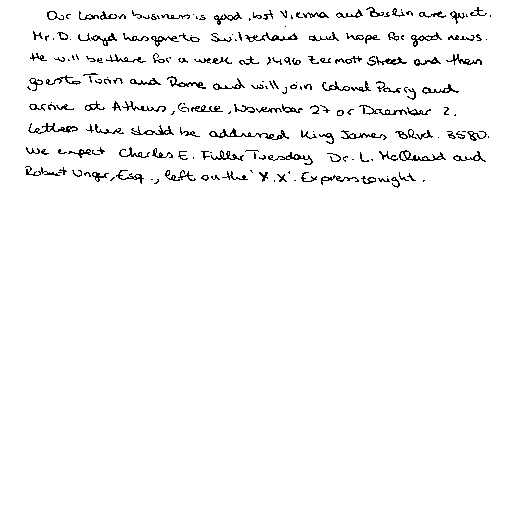 Our London business is good, but Vienna and Berlin are quiet.
Mr. D. Lloyd has gone to Switzerland and hope for good news.
He will be there for a week at 1496 Zermott Street and then
goes to Turin and Rome and will join Colonel Parry and
arrive at Athens, Greece, November 27 or December 2.
Letters there should be addressed King James Blvd. 3580.
We expect Charles E. Fuller Tuesday Dr. L. McQuaid and
Robert Unger, Esq., left on the 'X.X'. Express tonight.